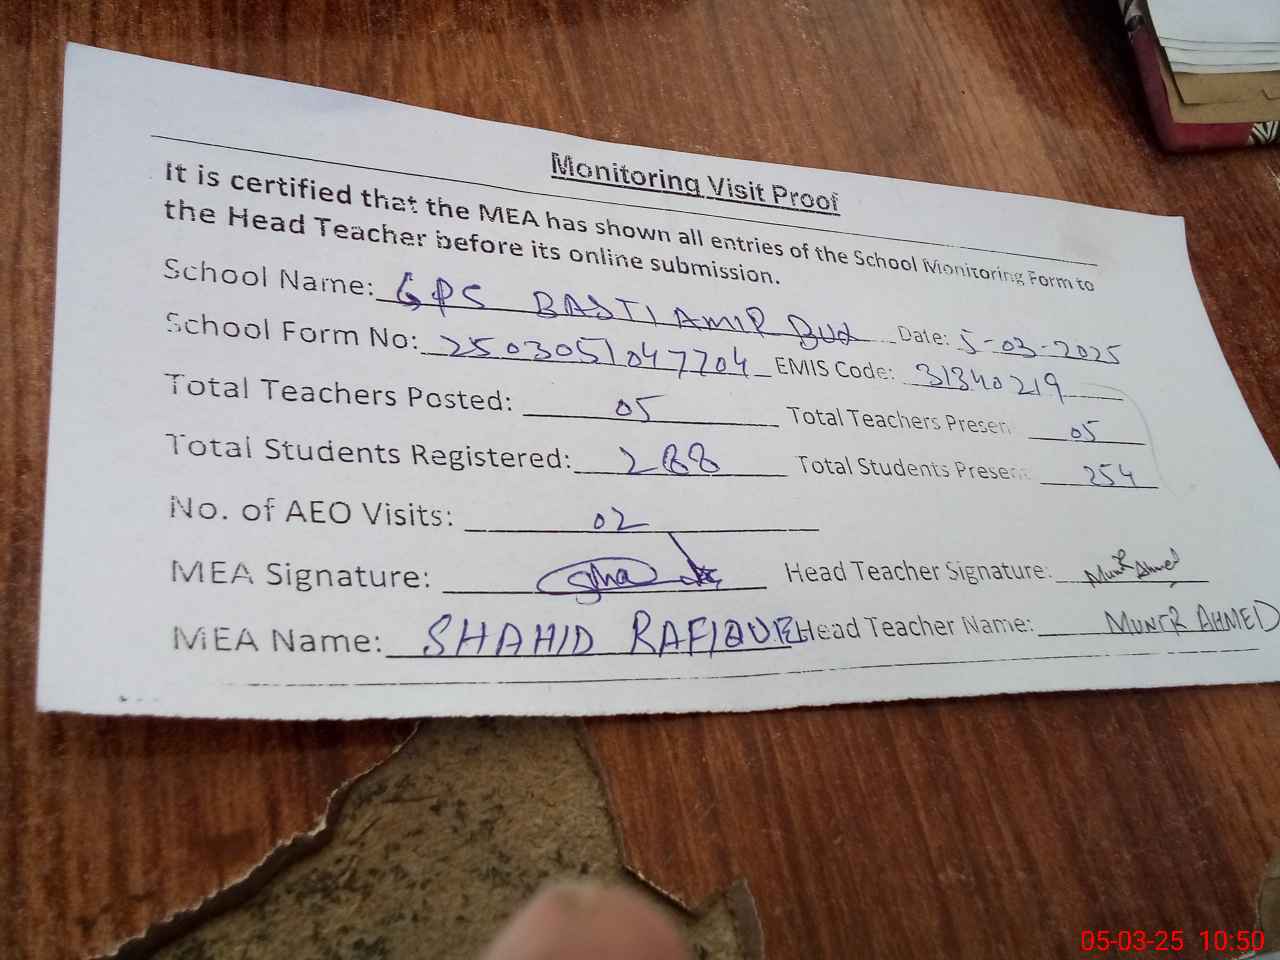 Monitoring Visit Proof
It is certified that the MEA has shown all entries of the School Monitoring Form to
the Head Teacher before its online submission.
School Name: GPS BASTI AMIR Date: 5-03-2025
School Form No: 2503051047704 EMIS Code: 31340219
Total Teachers Posted: 05 Total Teachers Present 05
Total Students Registered: 288 Total Students Present 254
No. of AEO Visits: 02
MEA Signature: Head Teacher Signature:
MEA Name: SHAHID RAFIQUE Head Teacher Name: MUNIR AHMED
05-03-25 10:50